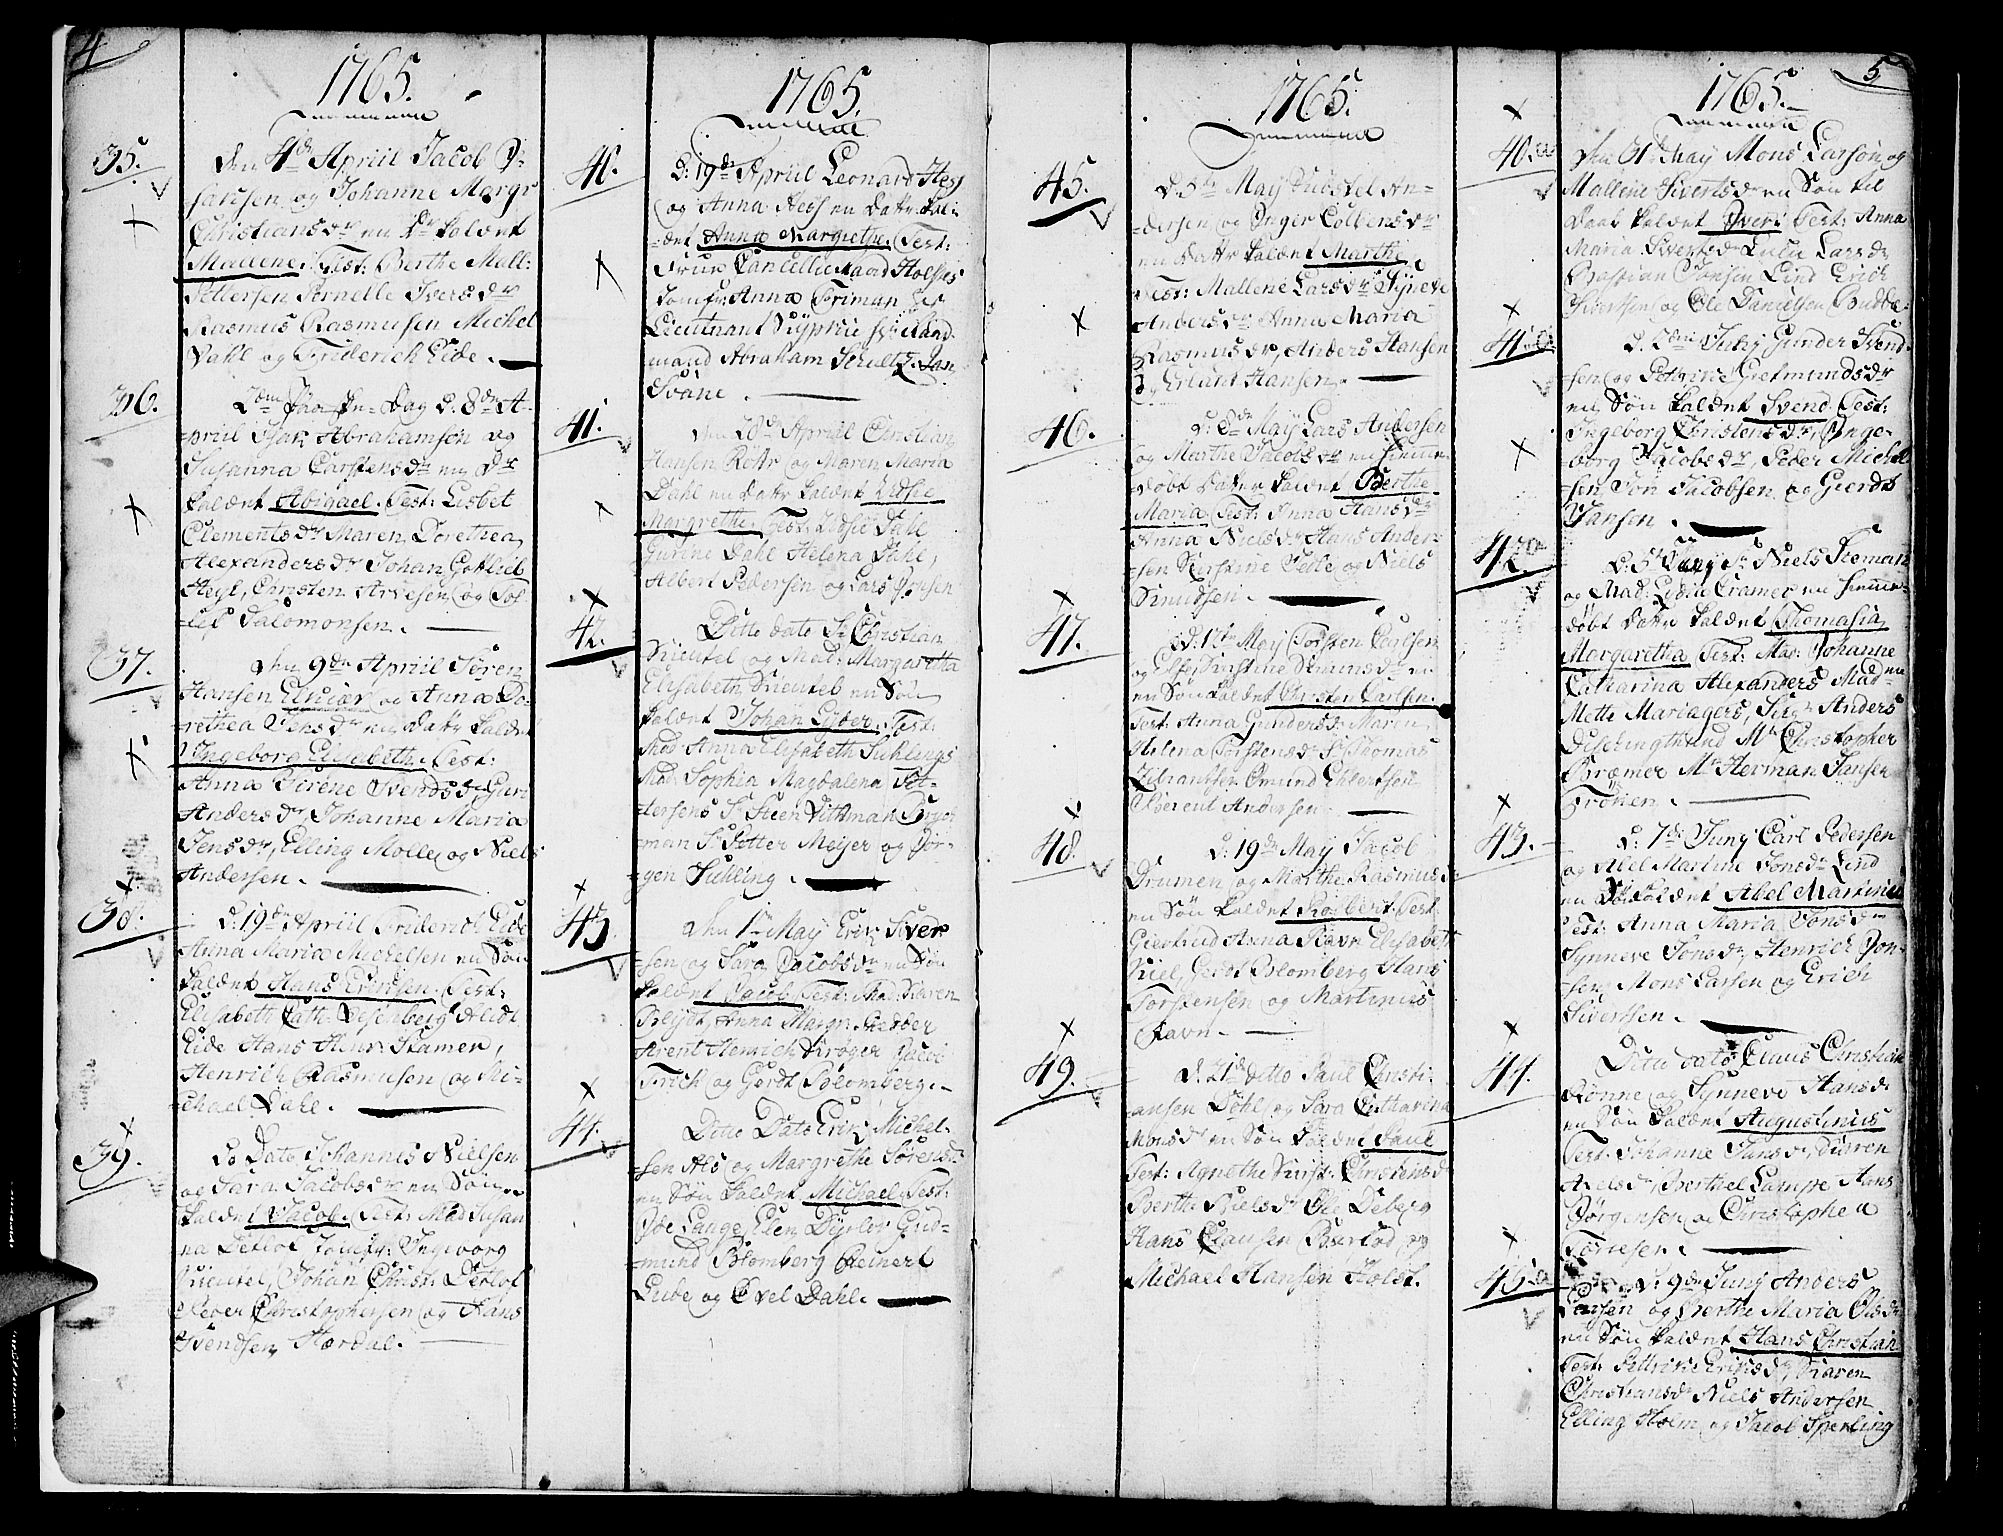 4
1765.
35.
Den 4de Apriil Jacob I-
sachsen og Johanne Margr
Christiansdr en Dr kaldet
Mallene. Test: Berthe Mall:
Pettersen Pernelle Iversdr
Rasmus Rasmusen Michel
Dahl og Friderich Eide.
36.
2den Paaske-Dag d. 8de A-
priil Isak Abrahamsen og
Susanna Carstensdr en Dr
kaldet Abigael. Test: Lisbet
Clementsdr Maren Dorethea
Alexandersdr Johan Gottlieb
Heyl, Christen Arvesen og Jos-
Salomonsen.
37.
den 9de Apriil Søren
Hansen og Anna Do-
rethea Jensdr en Dattr kaldt
Ingeborg Elisabeth. Test:
Anna Sirene Svendsdr Guri
Andersdr, Johanne Maria
Jensdr, Elling Molle og Niels
Andersen.
38.
d. 19de Apriil Friderich Eide
Anna Maria Michelsen en Søn
kaldet Hans Erichsen. Test:
Elisabeth Cath: Alidt
Eide Hans Henr: Stamer,
Henrich Rasmusen og Mi-
chael Dahl.
39.
Do Dato Johannes Nielsen
og Sara Jacobsdr en Søn
kaldet Jacob. Test: Mad Susan
na Detlof Jomfr: Ingeborg
Krüeutel, Johan Christ: Detlof
Peder Christophersen og Hans
Svendsen Hardal.
1765.
40.
D: 19de Apriil Leonard Hess
og Anna Hess en Dattr kal-
det Anna Margrethe. Test:
Fruen Cancellieraad Holstes
Jomfr: Anna Friman
Lieutnant
mand Abraham Schultz. Jan
Svane.
41.
den 20de Apriil Christian
Hansen Rottr og Maren Maria
Dahl en Dattr kaldet Zidsie
Margrethe. Test: Zidsie Dahl
Gurine Dahl Helena Dahl,
Albert Pedersen og Lars Jonsen
42.
Ditto dato Sr Christian
Krüeutel og Mad: Margaretha
Elisabeth Krüeutel en Søn
kaldet Johan Lyder. Test:
Mad Anna Elisabeth Suhlings
Mad: Sophia Magdalena Pet-
tersens Sr Steen Dithman Borge
man Sr Petter Meyer og Jør-
gen Suhling.
43.
den 1ste May Erik Siver
sen og Sara Jacobsdr en Søn
kaldet Jacob Test: Mad. Karen
Bleydt, Anna Margr: Hedder
Arent Henrich Krøger Jacob
Frich og Gerdt Blomberg.
44.
Ditto Dato Erik Michel-
sen Als og Margrethe Sørensdr
en Søn kaldet Michael. Test:
Ode Lange, Elen Deglov Gud-
mund Blomberg Reinert
Lude og Evel Dahl.
1765.
45.
d. 5te May An-
dersen og Inger Colbensdr
en Dattr kaldet Marthe
Test: Mallene Larsdr Syneve
Andersdr Anna Maria
Rasmusdr, Anders Hansen
og Erlant Hansen.
46.
d. 8de May Lars Andersen
og Marthe Jacobsdr en hiemme-
døbt Datter kaldet Berthe
Maria. Test: Anna Hansdr
Anna Nielsdr Hans Ander-
sen Kirstine Vedle og Niels
Knudsen.
47.
d. 17de May Torsten Carlsen
og Else Kirstine
en Søn kaldet Christen Carlsen.
Test: Anna Gundersdr Maren
Helena Torstensdr Sr Thomas
Zibrandtsen Omund Ehlertsen
Berent Andersen
48.
d: 19de May Jacob
Drumen og Marthe Rasmusdr
en Søn kaldet Robbert. Test:
Giertrud Anna Ravn Elisabet
Kiel, Gerdt Blomberg Hans
Torstensen og Martinus
Ravn.
49.
d. 21de ditto Paul Christi-
ansen Døhl og Sara Catharina
Monsdr en Søn kaldet Paul
Test: Agnethe Kirst: Christensdr
Berthe Nielsdr Ole Deberg
Hans Clausen Burlod og
Michael Hansen Holst.
5
1765.
40.a
den 31te May Mons Larsen og
Mallene Sivertsdr en Søn til
Daab kaldet Iver. Test: Anna
Maria Sivertsdr Lucie Larsdr
Bastian Jonsen Lind Erich
Sivertsen og Ole Danielsen Budde.
41.a
d. 2den Juny Gunder Svend-
sen og Gietmundsdr
en Søn kaldet Svend. Test:
Ingeborg Christensdr, Inge-
borg Jacobsdr, Peder Michel
sen Jon Jacobsen og Gierdt
Jansen.
42.a
d. 5te Juny Sr Niels Tieman
og Mad: Lydia Cramer en hiemme-
døbt Dattr kaldet Thomasia
Margaretha Test: Mad: Johanne
Catharina Alexanders Maden
Mette Mariagers, Sigr Anders
Dischingthund Mr Christopher
Bræmer Mr Herman Jansen
Froken.
43.
d: 7de Juny Carl Pedersen
og Abel Martine Jonsdr Lind
en Dr kaldet Abel Martina
Test: Anna Maria Jonsdr
Synneve Jonsdr, Henrich Jon-
sen, Mons Larsen og Erich
Sivertsen.
44.
Ditto dato Claus Christian
Rønne og Synneve Hansdr
en Søn kaldet Augustinus
Test. Johanne Jansdr, Karen
Axelsdr, Berthel Lampe Hans
Børgensen og Christopher
Torresen.
45.a
d. 9de Juny Anders
Larsen og Berthe Maria Olsdr
en Søn kaldet Hans Christian
Test: Pettrine Erichsdr, Karen
Christiansdr Niels Andersen
Elling Holm og Jacob Sperling